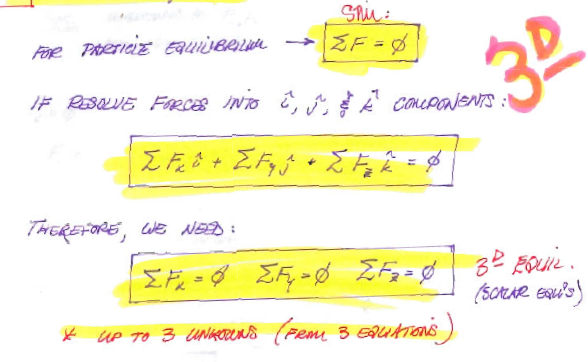 STILL:
FOR PARTICLE EQUILIBRIUM → ΣF = ϕ
3D
IF RESOLVE FORCES INTO î, ĵ, & k̂ COMPONENTS:
ΣFx î + ΣFy ĵ + ΣFz k̂ = ϕ
THEREFORE, WE NEED:
ΣFx = ϕ ΣFy = ϕ ΣFz = ϕ
3D EQUIL.
(SCALAR EQU'S)
* UP TO 3 UNKNOWNS (FROM 3 EQUATIONS)